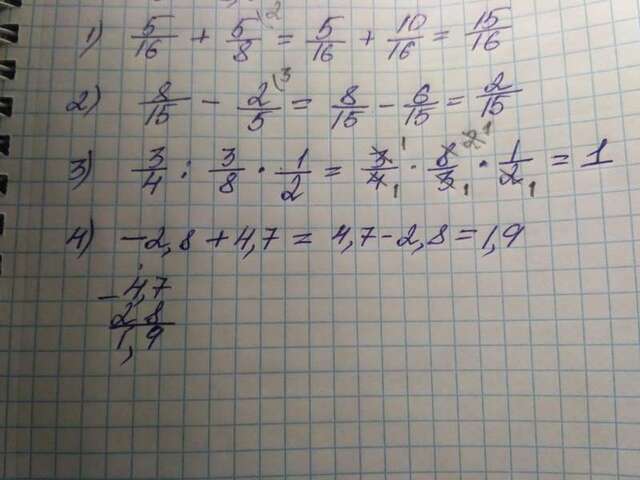 1) 5/16 + 5/8 (2 = 5/16 + 10/16 = 15/16
2) 8/15 - 2/5 (3 = 8/15 - 6/15 = 2/15
3) 3/4 : 3/8 · 1/2 = 3/4 1 1 · 8/3 2 1 1 · 1/2 1 = 1
4) -2,8 + 4,7 = 4,7 - 2,8 = 1,9
- 4,7
2 8
1,9